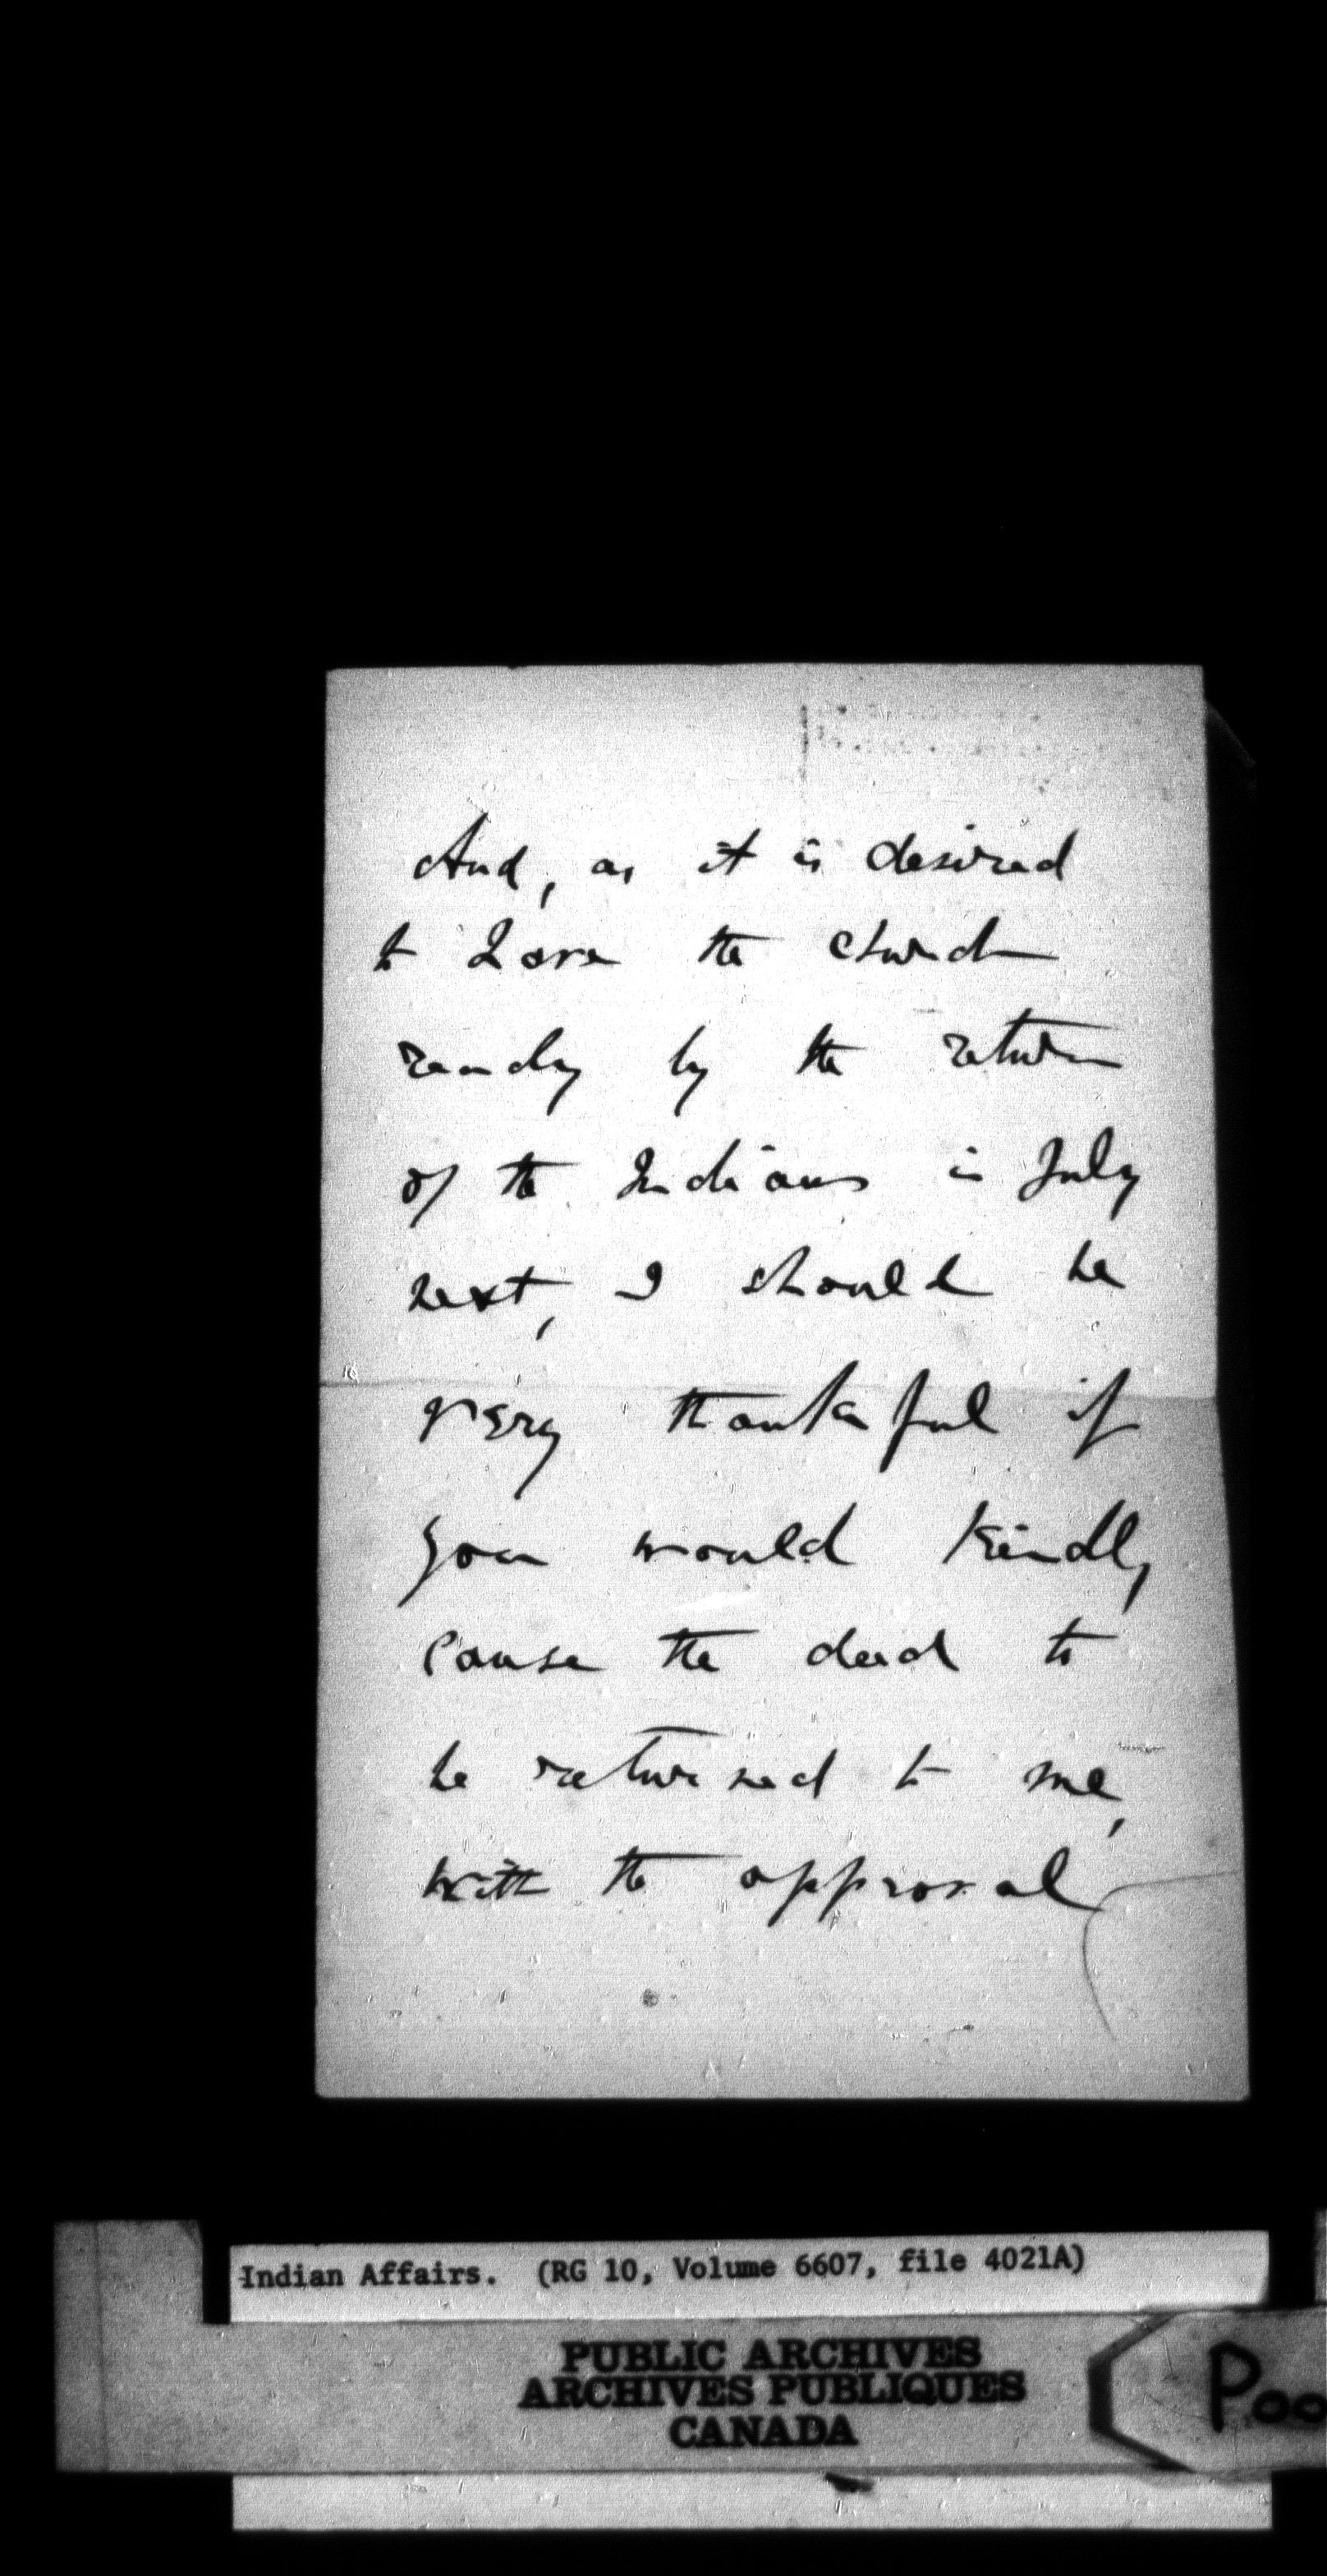 And, as it is desired
to have the church
ready by the return
of the Indians in July
next, I should be
very thankful if
you would kindly
cause the deed to
be returned to me,
with the approval
Indian Affairs. (RG 10, Volume 6607, file 4021A)
PUBLIC ARCHIVES
ARCHIVES PUBLIQUES
CANADA
Poo